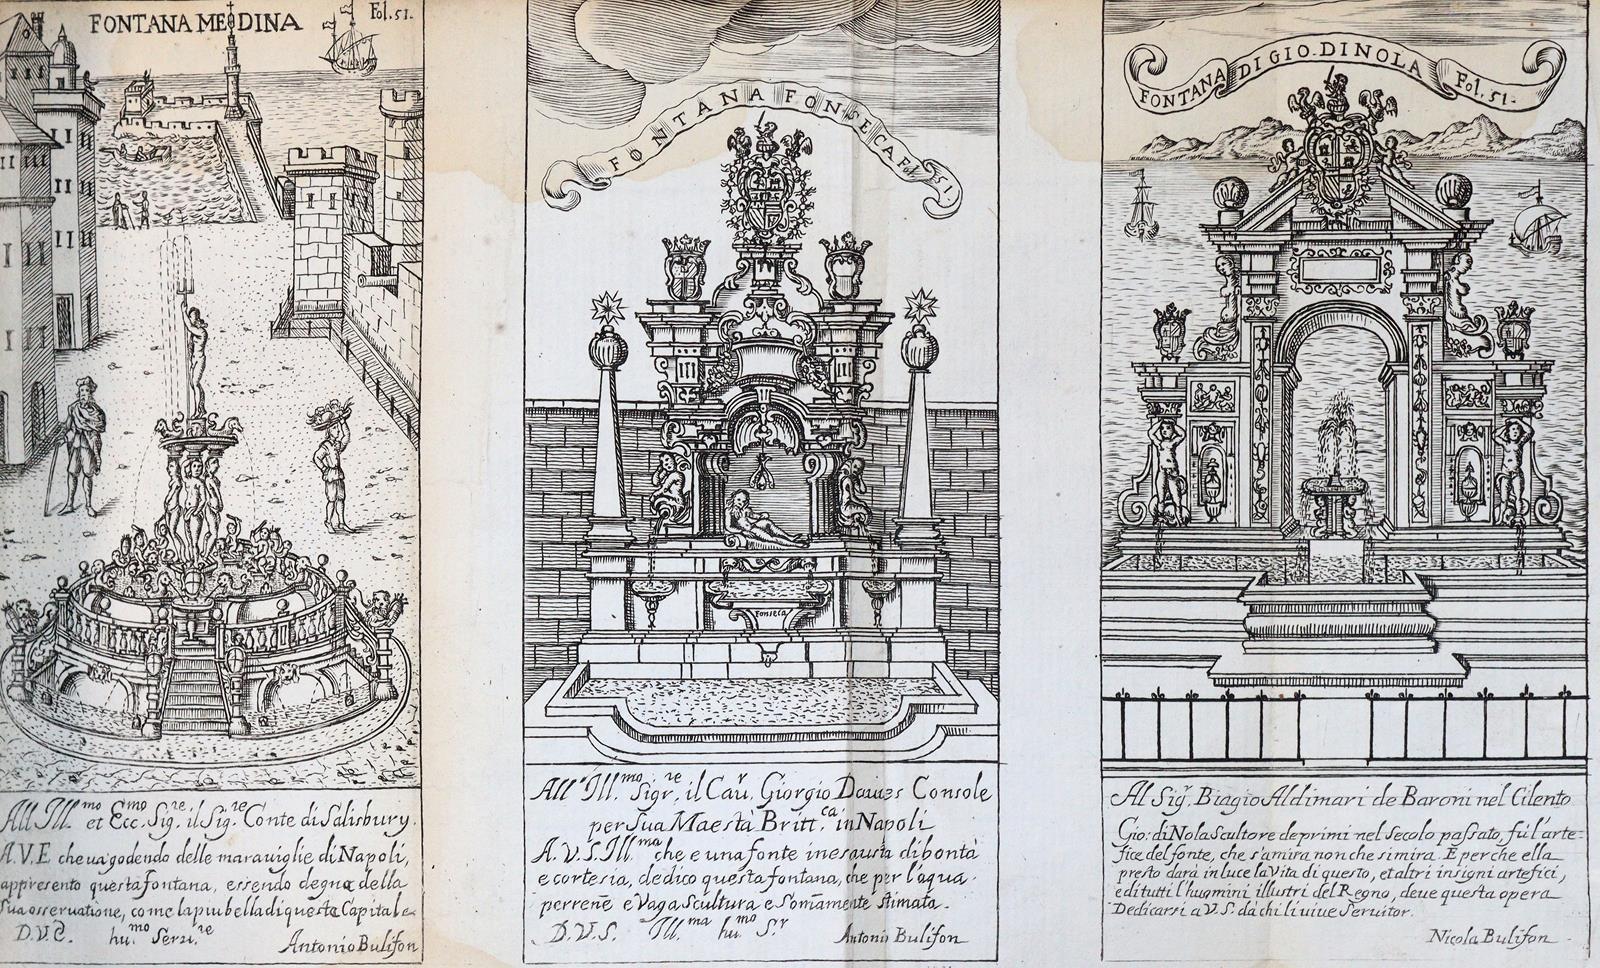 FONTANA MEDINA
Fol. 51.
All Ill.mo et Ecc.mo Sig.re il Sig.re Conte di Salisbury.
A.V.E che uà godendo delle marauiglie di Napoli,
appresento questa fontana, essendo degna della
sua osseruatione, come la piu bella di questa Capitale
D.V.E. hu.mo Seru.re
Antonio Bulifon
FONTANA FONSECA Fol. 51
Fonseca
All' Ill.mo Sigr.re il Cau.r Giorgio Dauies Console
per Sua Maestà Britt.ca in Napoli
A.V.S. Ill.ma che e una fonte inesausta di bontà
e cortesia, dedico questa fontana, che per l'aqua
perrene e Vaga Scultura e Somamente stimata.
D.V.S. Ill.ma hu.mo S.r
Antonio Bulifon
FONTANA DI GIO. DI NOLA Fol. 51.
Al Sig.r Biagio Aldimari de Baroni nel Cilento
Gio: di Nola scultore de primi nel Secolo passato, fu l'arte=
fice del fonte, che s'amira non che si mira. E perche ella
presto darà in luce la Vita di questo, et altri insigni artefici,
e di tutti l'hugmini illustri del Regno, deue questa opera
Dedicarsi a V.S. dà chi li uiue Seruitor.
Nicola Bulifon